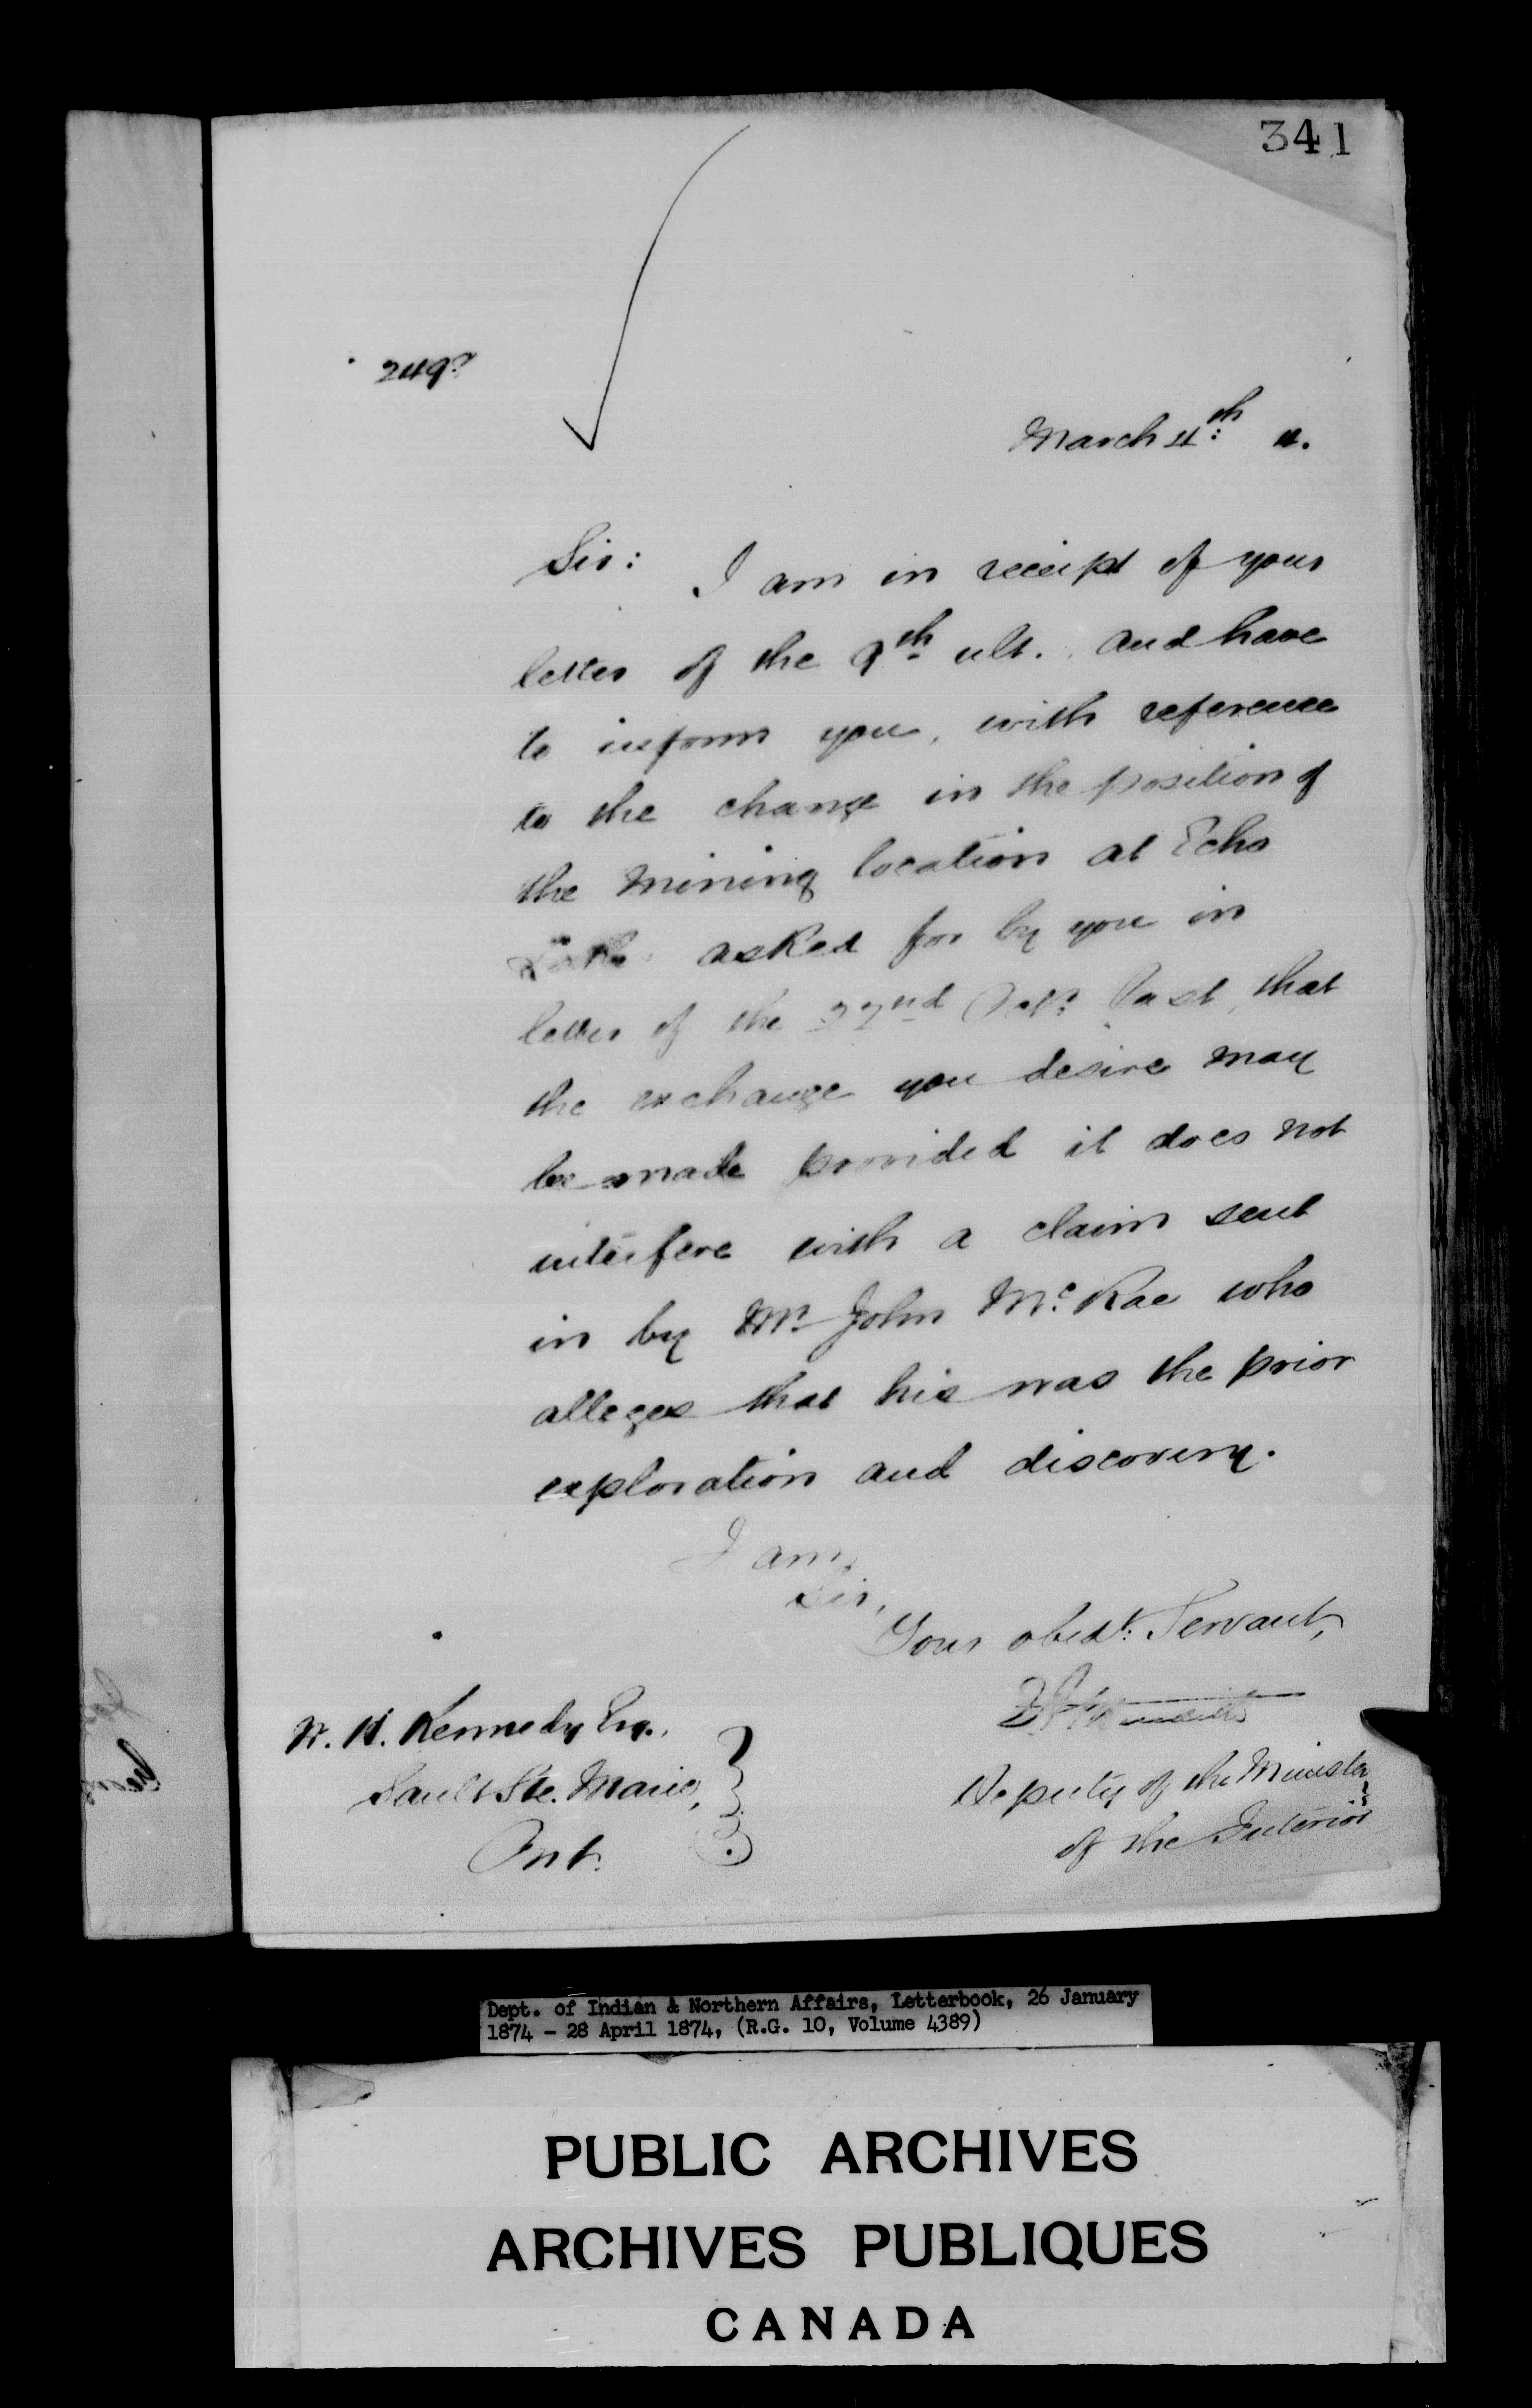 341
249?
March 4th: 4.
Sir: I am in receipt of your
letter of the 9th ult. and have
to inform you, with reference
to the change in the position of
the Mining location at Echo
Lake asked for by you in
letter of the 22nd Oct: last, that
the exchange you desire may
be made provided it does not
interfere with a claim sent
in by Mr John Mc. Rae who
alleges that his was the prior
exploration and discovery.
I am,
Sir,
Your obedt: Servant,
Deputy of the Minister
of the Interior
W. H. Kennedy Esq.,
Sault Ste. Marie,
Ont.
Dept. of Indian & Northern Affairs, Letterbook, 26 January
1874 - 28 April 1874, (R.G. 10, Volume 4389)
PUBLIC ARCHIVES
ARCHIVES PUBLIQUES
CANADA